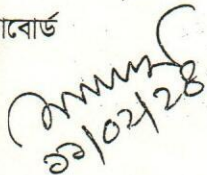 াবোর্ড
১১/০২/২৪